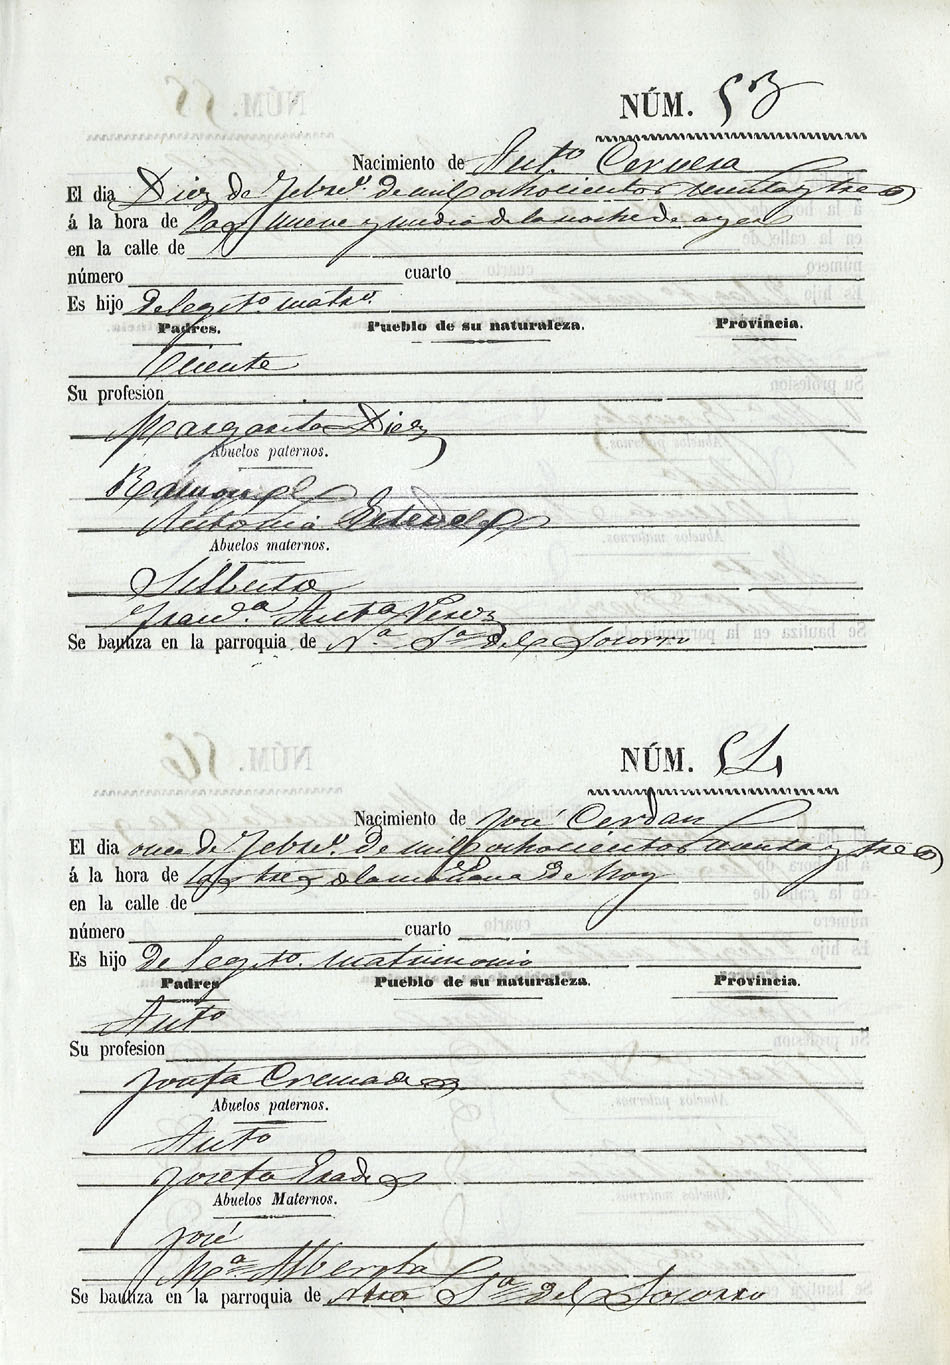 NÚM. 53
Nacimiento de Anto. Cervera
El dia Diez de Febro. de mil ochocientos y tres
á la hora de las nueve y media de la noche de ayer
en la calle de
número cuarto
Es hijo de legito. matro.
Padres. Pueblo de su naturaleza. Provincia.
Vicente
Su profesion
Margarita Diez
Abuelos paternos.
Ramon
Antonia Esteve
Abuelos maternos.
Franca. Anta.
Se bautiza en la parroquia de Na. Sa. del Socorro
NÚM. 54
Nacimiento de José Cerdan
El dia once de Febro. de mil ochocientos y tres
á la hora de las tres de la mañana de hoy
en la calle de
número cuarto
Es hijo de legito. matrimonio
Padres Pueblo de su naturaleza. Provincia.
Anto
Su profesion
Josefa Cremades
Abuelos paternos.
Anto
Josefa
Abuelos Maternos.
José
Ma. Alberola
Se bautiza en la parroquia de Ntra Sa. del Socorro